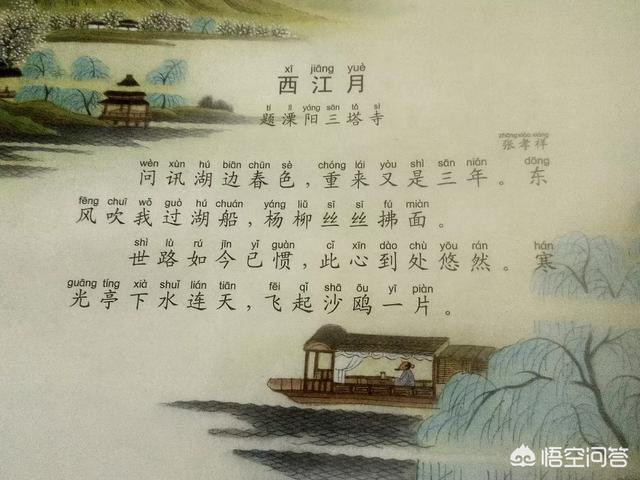 xī jiāng yuè
西江月
tí lì yáng sān tǎ sì
题溧阳三塔寺
zhāng xiào xiáng
张孝祥
wèn xùn hú biān chūn sè chóng lái yòu shì sān nián dōng
问讯湖边春色，重来又是三年。东
fēng chuī wǒ guò hú chuán yáng liǔ sī sī fú miàn
风吹我过湖船，杨柳丝丝拂面。
shì lù rú jīn yǐ guàn cǐ xīn dào chù yōu rán hán
世路如今已惯，此心到处悠然。寒
guāng tíng xià shuǐ lián tiān fēi qǐ shā ōu yī piàn
光亭下水连天，飞起沙鸥一片。
悟空问答